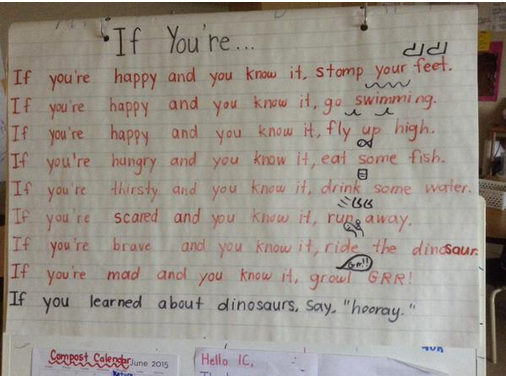 If You're...
If you're happy and you know it, stomp your feet.
If you're happy and you know it, go swimming.
If you're happy and you know it, fly up high.
If you're hungry and you know it, eat some fish.
If you're thirsty and you know it, drink some water.
If you're scared and you know it, run away.
If you're brave and you know it, ride the dinosaur.
Grr!!
If you're mad and you know it, growl GRR!
If you learned about dinosaurs, say, "hooray."
Compost Calendar June 2015
Hello 1C,